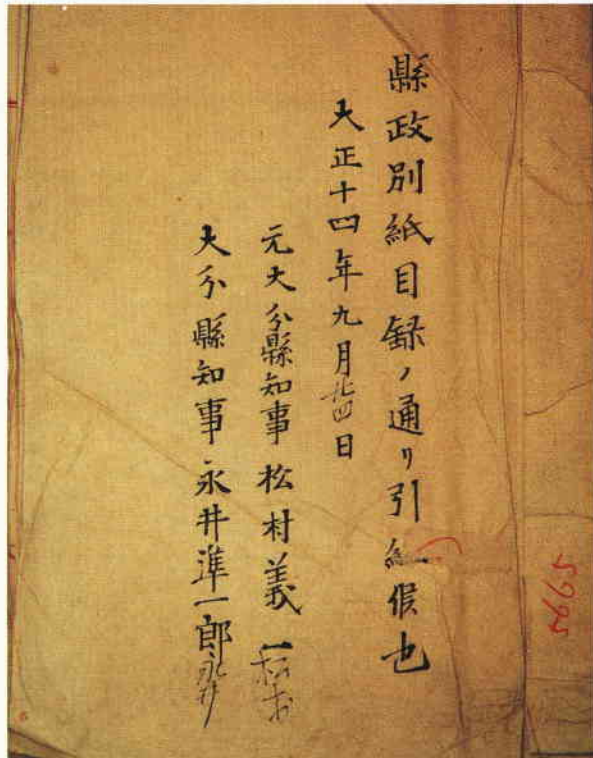 縣政別紙目録ノ通リ引継候也
大正十四年九月廿四日
元大分縣知事 松村義一 松村
大分縣知事 永井準一郎 永井
5665